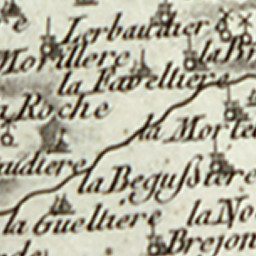 Lerbaudier
Morillere
la Br
la Faveltiere
a Roche
la Morte
audiere
la Begussiere
la Gueltiere
la No
Brejon